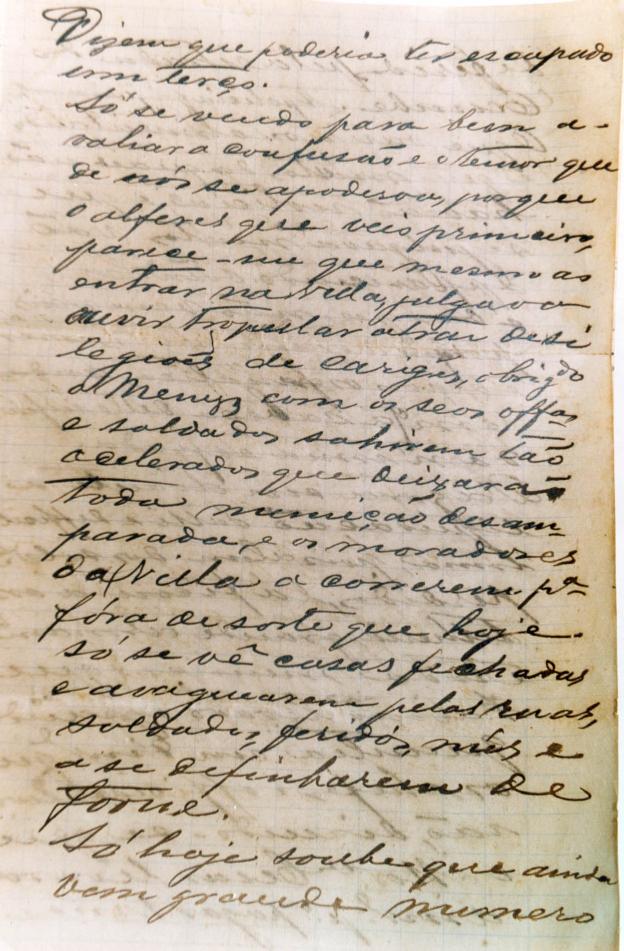 Dizem que poderia ter escapado
um terço.
Só se vendo para bem a-
valiar a confusão e o temor que
de nós se apoderou, porque
o alferes que veis primeiro,
parece-me que mesmo ao
entrar na Villa, julgava
ouvir tropellar atraz de si
legiões de
o Menezes com os seos offas
e soldados sahirem tão
acelerados que deixarão
toda munição desam-
parada, e os moradores
da Villa a correrem pa
fóra de sorte que hoje
só se vê casas fechadas
e a vaguearem pelas ruas,
soldados, feridos, nús e
a se definharem de
fome.
Só hoje soube que ainda
vem grande numero